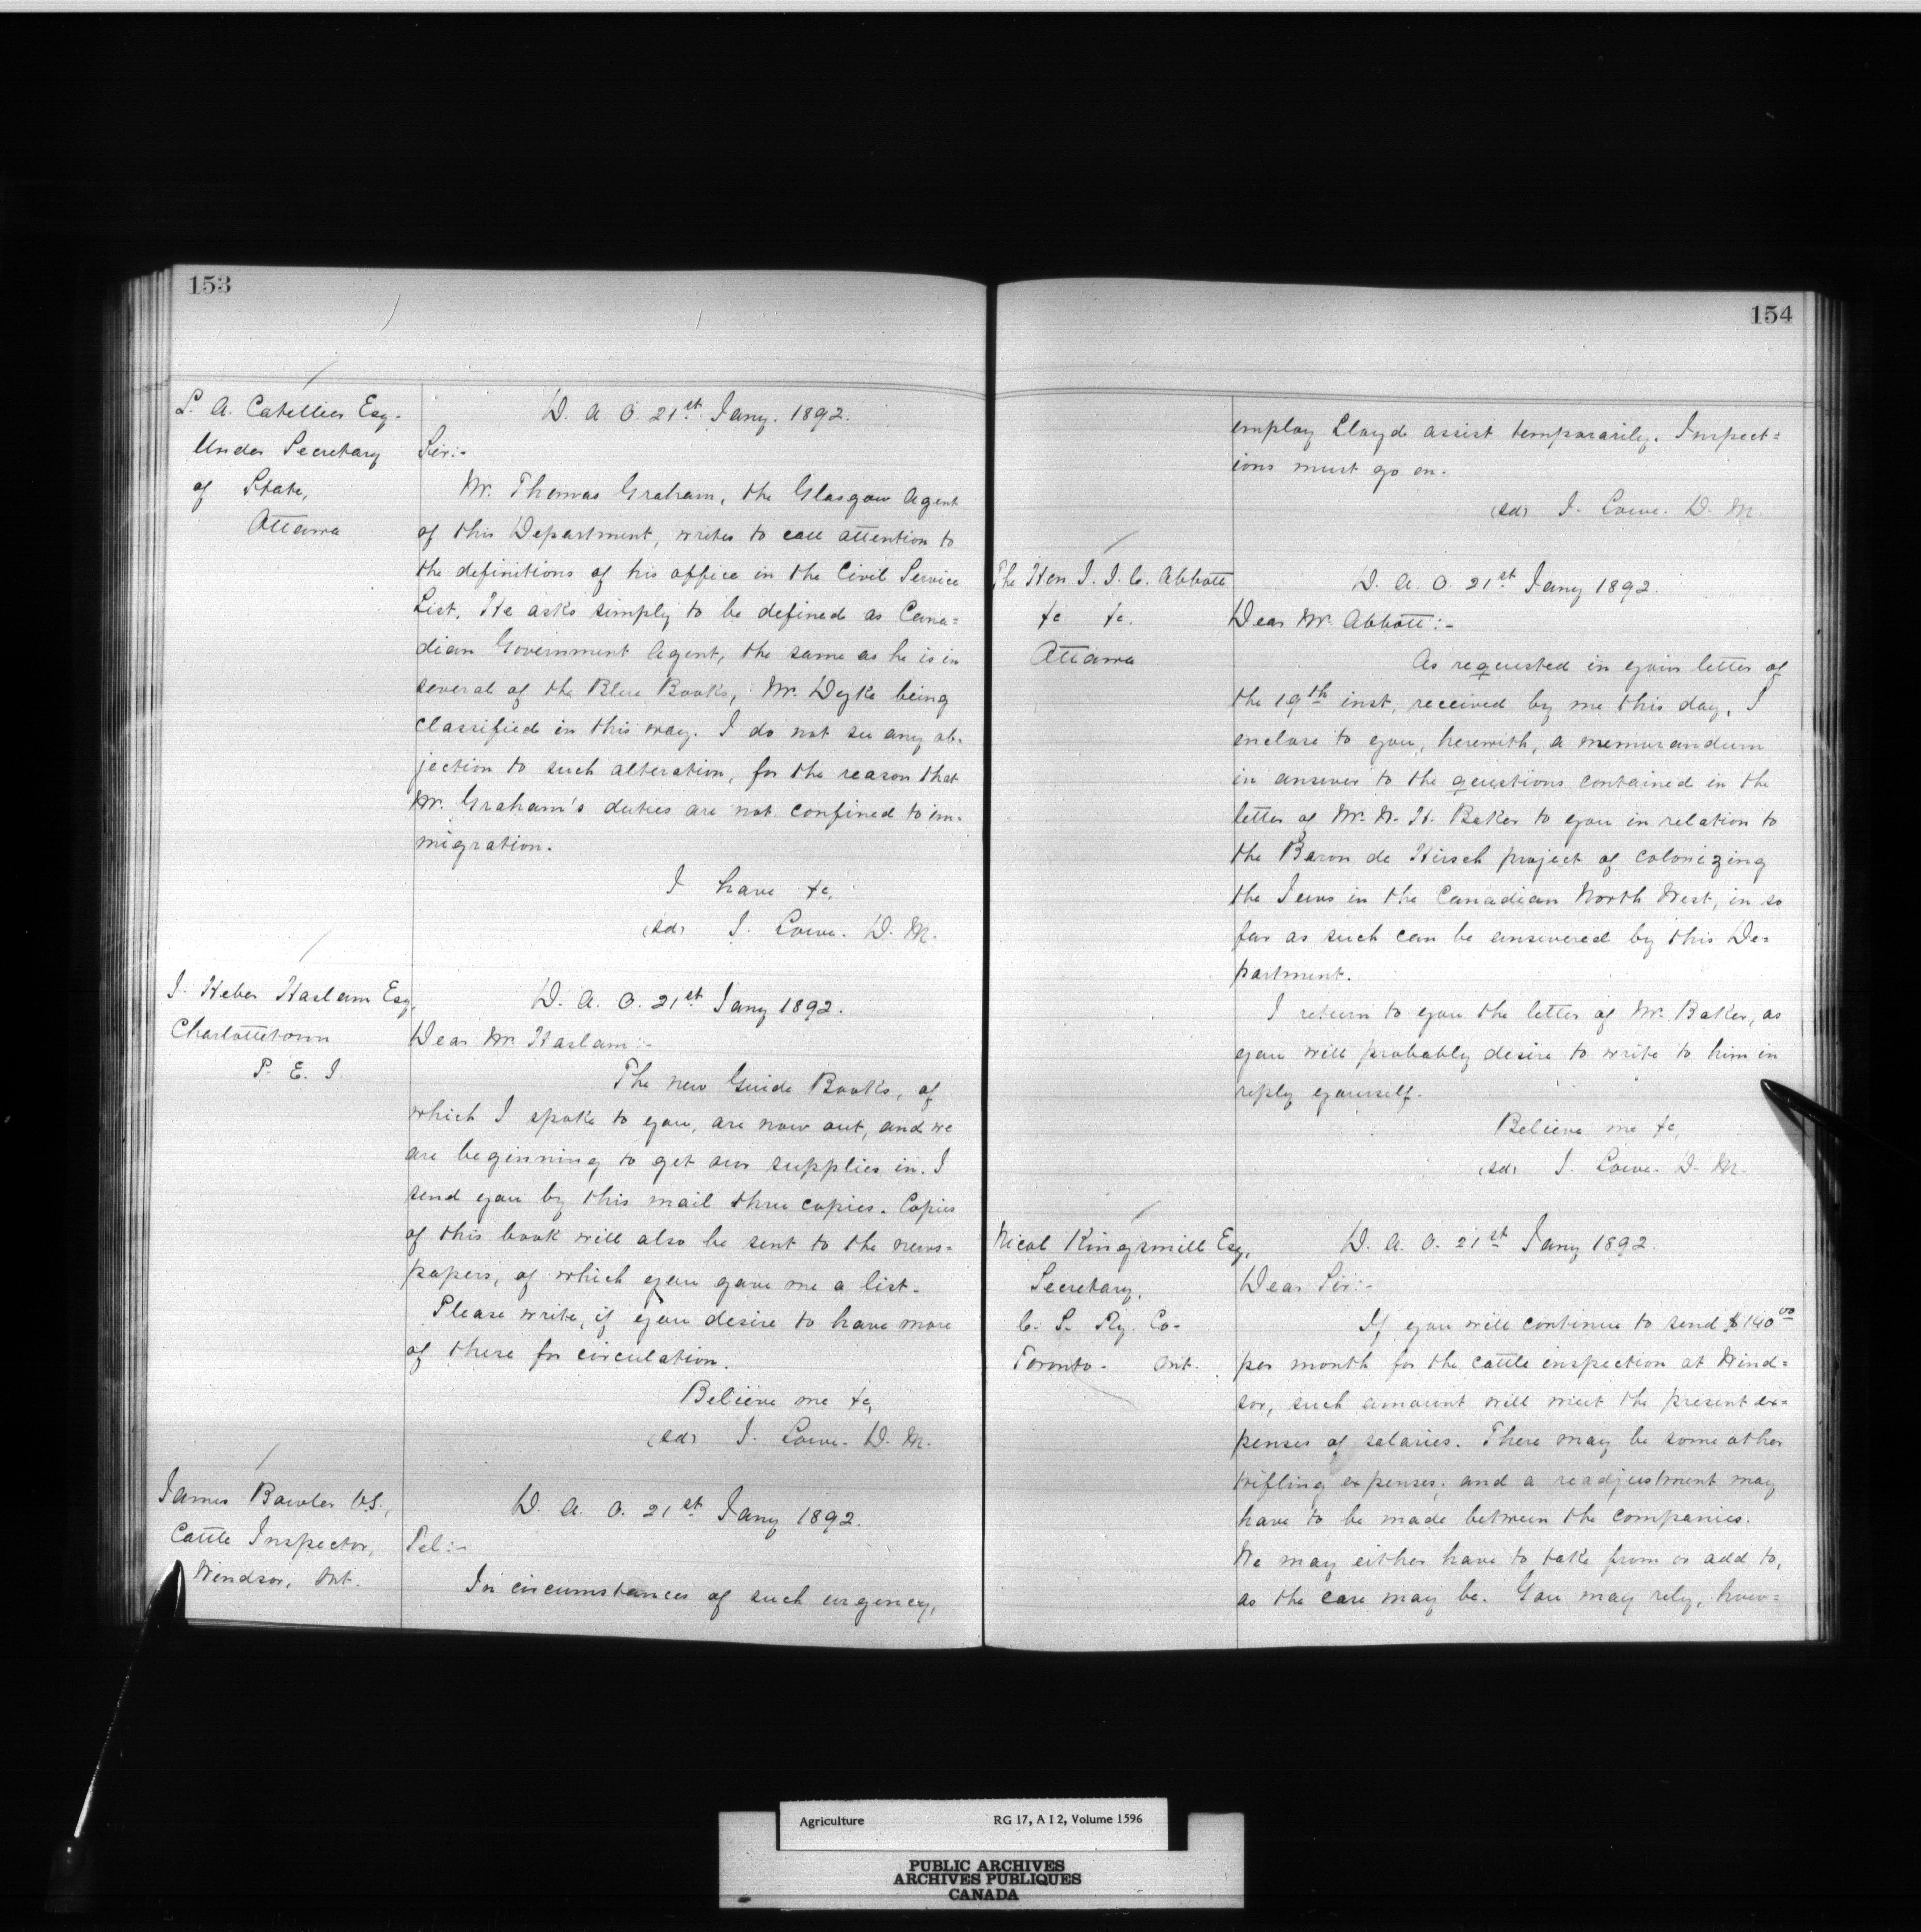 153
L. A. Catellier Esq.
Under Secretary
of State,
Ottawa
D. A. O. 21st Jany. 1892.
Sir:-
Mr. Thomas Graham, the Glasgow Agent
of this Department, writes to call attention to
the definitions of his office in the Civil Service
List. He asks simply to be defined as Cana=
dian Government Agent, the same as he is in
several of the Blue Books, Mr. Dyke being
classified in this way. I do not see any ob-
jection to such alteration, for the reason that
Mr. Graham's duties are not confined to im-
migration.
I have &c,
(sd) J. Lowe. D. M.
J. Heber Haslam Esq,
Charlottetown
P. E. I.
D. A. O. 21st Jany 1892.
Dear Mr. Haslam:-
The new Guide Books, of
which I spoke to you, are now out, and we
are beginning to get our supplies in. I
send you by this mail three copies. Copies
of this book will also be sent to the news-
papers, of which you gave me a list.
Please write, if you desire to have more
of these for circulation.
Believe me &c,
(sd) J. Lowe. D. M.
James Bowler V.S.,
Cattle Inspector,
Windsor, Ont.
D. A. O. 21st Jany 1892.
Tel:-
In circumstances of such urgency,
154
employ Lloyd assist temporarily. Inspect=
ions must go on.
(sd) J. Lowe. D. M.
The Hon J. J. C. Abbott
&c &c.
Ottawa
D. A. O. 21st Jany 1892.
Dear Mr. Abbott:-
As requested in your letter of
the 19th inst, received by me this day, I
enclose to you, herewith, a memorandum
in answer to the questions contained in the
letter of Mr. W. H. Baker to you in relation to
the Baron de Hirsch project of colonizing
the Jews in the Canadian North West, in so
far as such can be answered by this De=
partment.
I return to you the letter of Mr. Baker, as
you will probably desire to write to him in
reply yourself.
Believe me &c,
(sd) J. Lowe. D. M.
Nicol Kingsmill Esq,
Secretary,
C. S. Ry. Co-
Toronto- Ont.
D. A. O. 21st Jany 1892.
Dear Sir:-
If you will continue to send $140 00
per month for the cattle inspection at Wind=
sor, such amount will meet the present ex=
penses of salaries. There may be some other
trifling expenses; and a readjustment may
have to be made between the companies.
We may either have to take from or add to,
as the case may be. You may rely, how=
Agriculture RG 17, A I 2, Volume 1596
PUBLIC ARCHIVES
ARCHIVES PUBLIQUES
CANADA